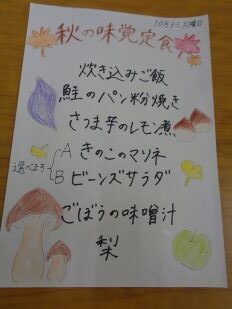 10月3日火曜日
秋の味覚定食
炊き込みご飯
鮭のパン粉焼き
さつま芋のレモン煮
選べます
A きのこのマリネ
B ビーンズサラダ
ごぼうの味噌汁
梨